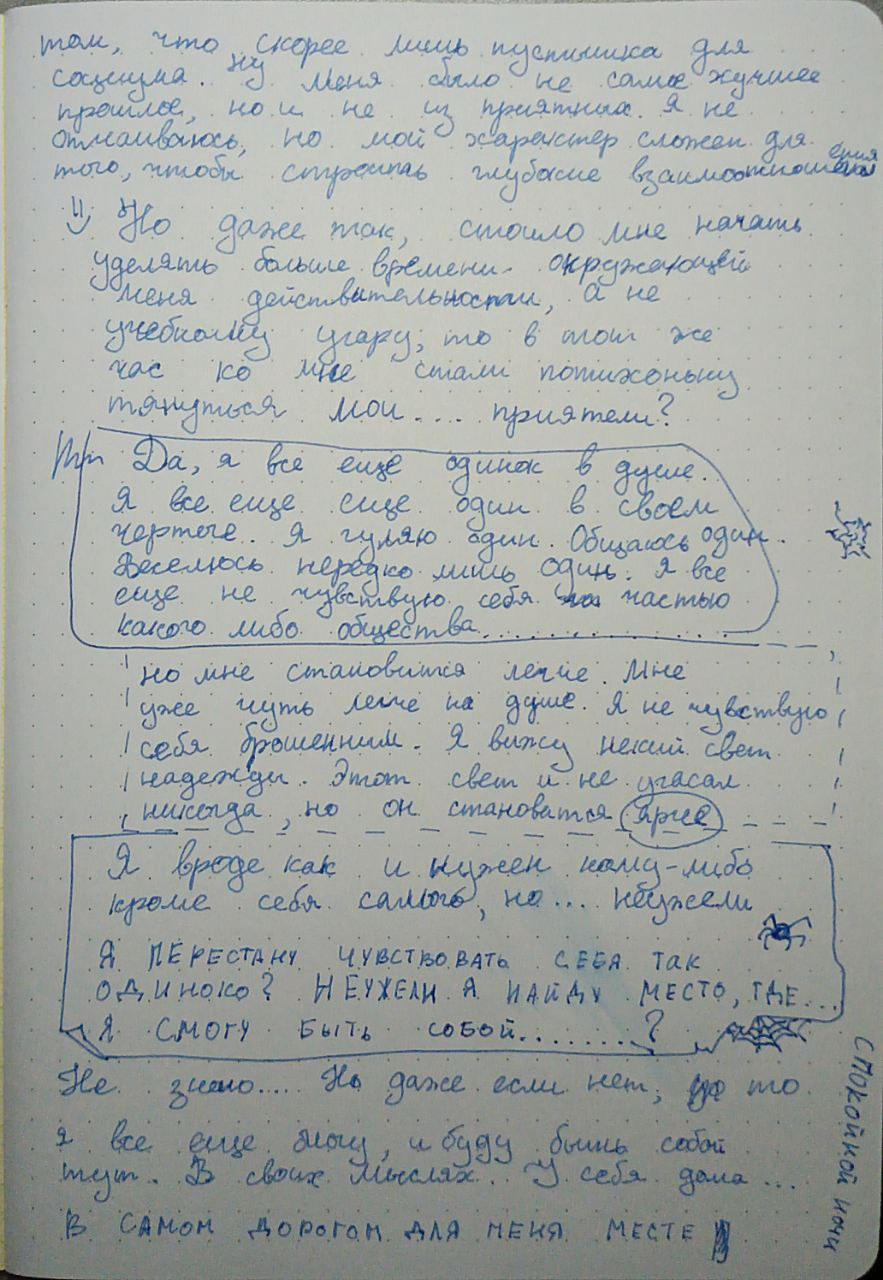 том, что скорее лишь пустышка для
социума. Ну меня было не самое худшее
прошлое, но и не из приятных. Я не
отмаиваюсь, но мой характер сложен для
того, чтобы строить глубокие взаимоотношения
Но даже так, стоило мне начать
уделять больше времени окружающей
меня действительности, а не
учебному угару, то в тот же
час ко мне стали потихоньку
тянуться мои.... приятели?
Да, я все еще одинок в душе.
Я все еще еще один в своем
чертоге. Я гуляю один. Общаюсь один.
Веселюсь нередко лишь один. Я все
еще не чувствую себя частью
какого либо общества.................
но мне становится легче. Мне
уже чуть легче на душе. Я не чувствую
себя брошенным. Я вижу некий свет
надежды. Этот свет и не угасал
никогда, но он становится ярче
Я вроде как и нужен кому-либо
кроме себя самого, но... неужели
Я ПЕРЕСТАНУ ЧУВСТВОВАТЬ СЕБЯ ТАК
ОДИНОКО? НЕУЖЕЛИ Я НАЙДУ МЕСТО, ГДЕ...
Я СМОГУ БЫТЬ СОБОЙ........?
Не знаю.... Но даже если нет, то
я все еще могу, и буду быть собой
тут. В своих мыслях.. У себя дома...
В САМОМ ДОРОГОМ ДЛЯ МЕНЯ МЕСТЕ
СПОКОЙНОЙ НОЧИ